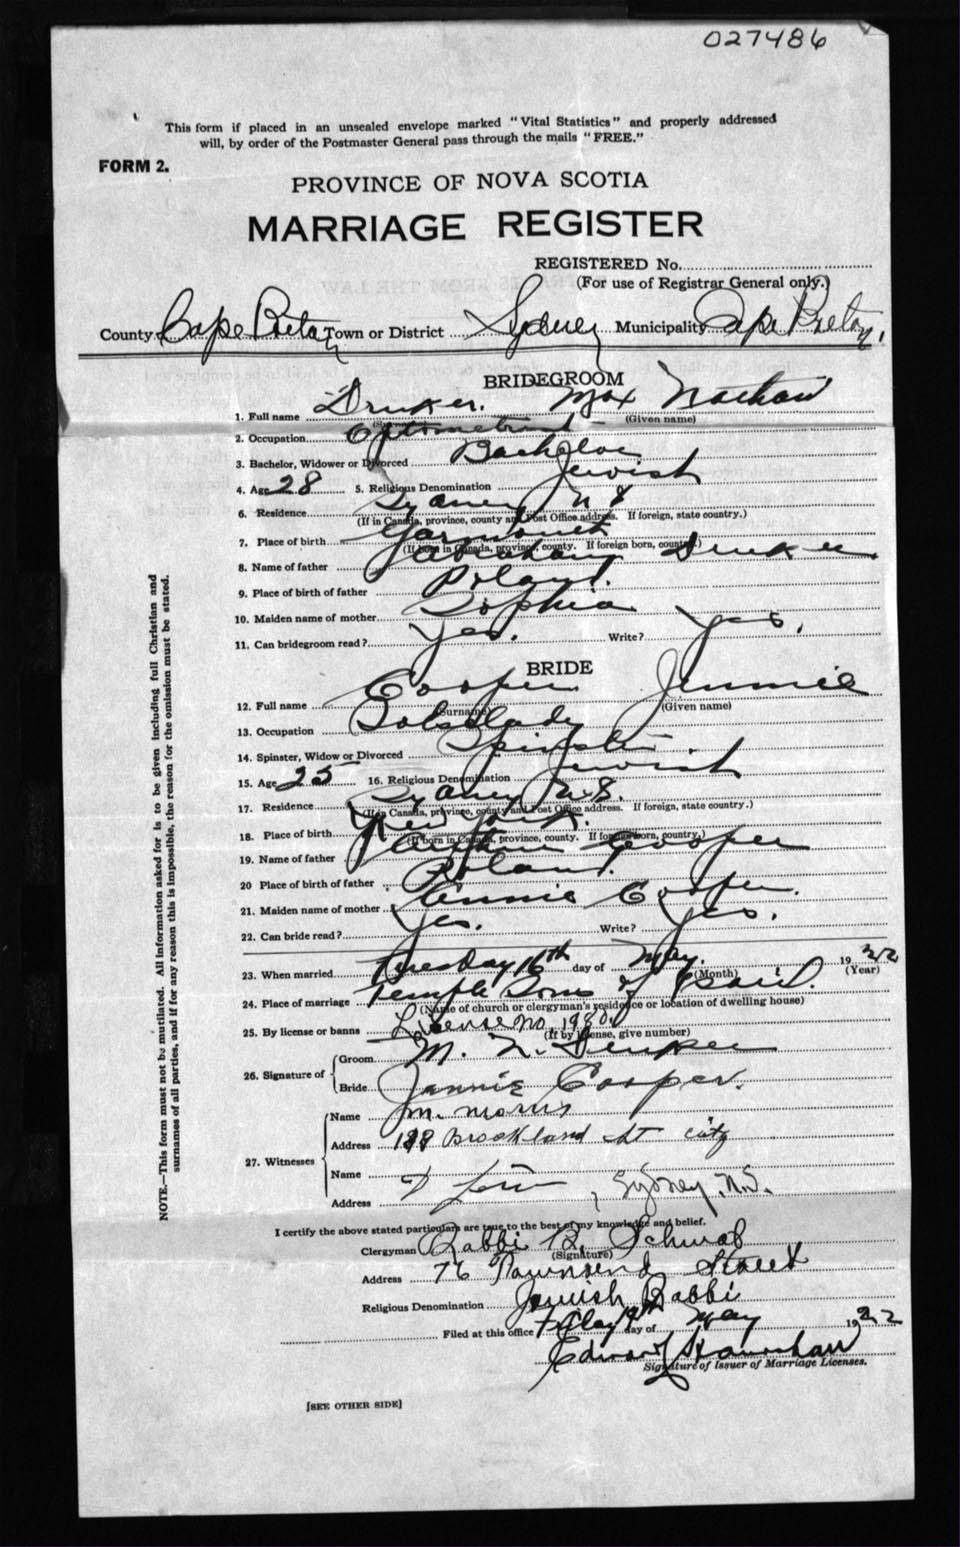 027486
This form if placed in an unsealed envelope marked "Vital Statistics" and properly addressed
will, by order of the Postmaster General pass through the mails "FREE."
FORM 2.
PROVINCE OF NOVA SCOTIA
MARRIAGE REGISTER
REGISTERED No.
(For use of Registrar General only.)
County Cape Breton Town or District Sydney Municipality Cape Breton
BRIDEGROOM
1. Full name Druker. Max Nathan
(Given name)
2. Occupation Optometrist
3. Bachelor, Widower or Divorced Bachelor
4. Age 28 5. Religious Denomination Jewish
6. Residence Sydney N S
(If in Canada, province, county and Post Office address. If foreign, state country.)
7. Place of birth
(If born in Canada, province, county. If foreign born, country.)
8. Name of father Abraham Druker
9. Place of birth of father Poland.
10. Maiden name of mother Sophia
11. Can bridegroom read? Yes. Write? Yes.
BRIDE
12. Full name Cooper Jennie
(Surname) (Given name)
13. Occupation
14. Spinster, Widow or Divorced Spinster.
15. Age 25 16. Religious Denomination Jewish
17. Residence Sydney N.S.
(If in Canada, province, county and Post Office address. If foreign, state country.)
18. Place of birth
(If born in Canada, province, county. If foreign born, country.)
19. Name of father Cooper
20 Place of birth of father Poland.
21. Maiden name of mother Annie Cooper.
22. Can bride read? Yes. Write? Yes.
23. When married Tuesday 16th day of May. 1922
(Month) (Year)
24. Place of marriage Temple Sons of Israel.
(Name of church or clergyman's residence or location of dwelling house)
25. By license or banns License No 1980
(If by license, give number)
26. Signature of Groom M. N. Druker
Bride Jennie Cooper.
27. Witnesses Name M. Morris
Address Brookland St City
Name
Address Sydney, N.S.
I certify the above stated particulars are true to the best of my knowledge and belief.
Clergyman Rabbi B. Schwab
(Signature)
Address 76 Townsend Street
Religious Denomination Jewish Rabbi
Filed at this office day of May 1922
Edward
Signature of Issuer of Marriage Licenses.
[SEE OTHER SIDE]
NOTE.—This form must not be mutilated. All information asked for is to be given including full Christian and
surnames of all parties, and if for any reason this is impossible, the reason for the omission must be stated.